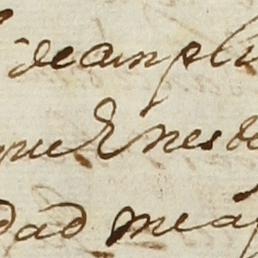 deampli
que Enes de
dad mea